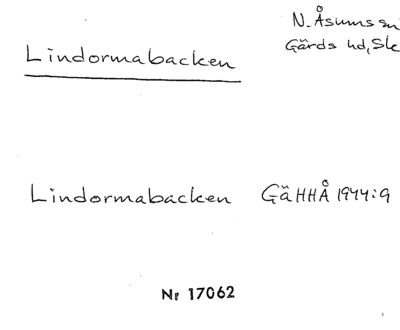 N. Åsums sn
Gärds hd, Sk
Lindormabacken
Lindormabacken GäHHÅ 1944:9
Nr 17062